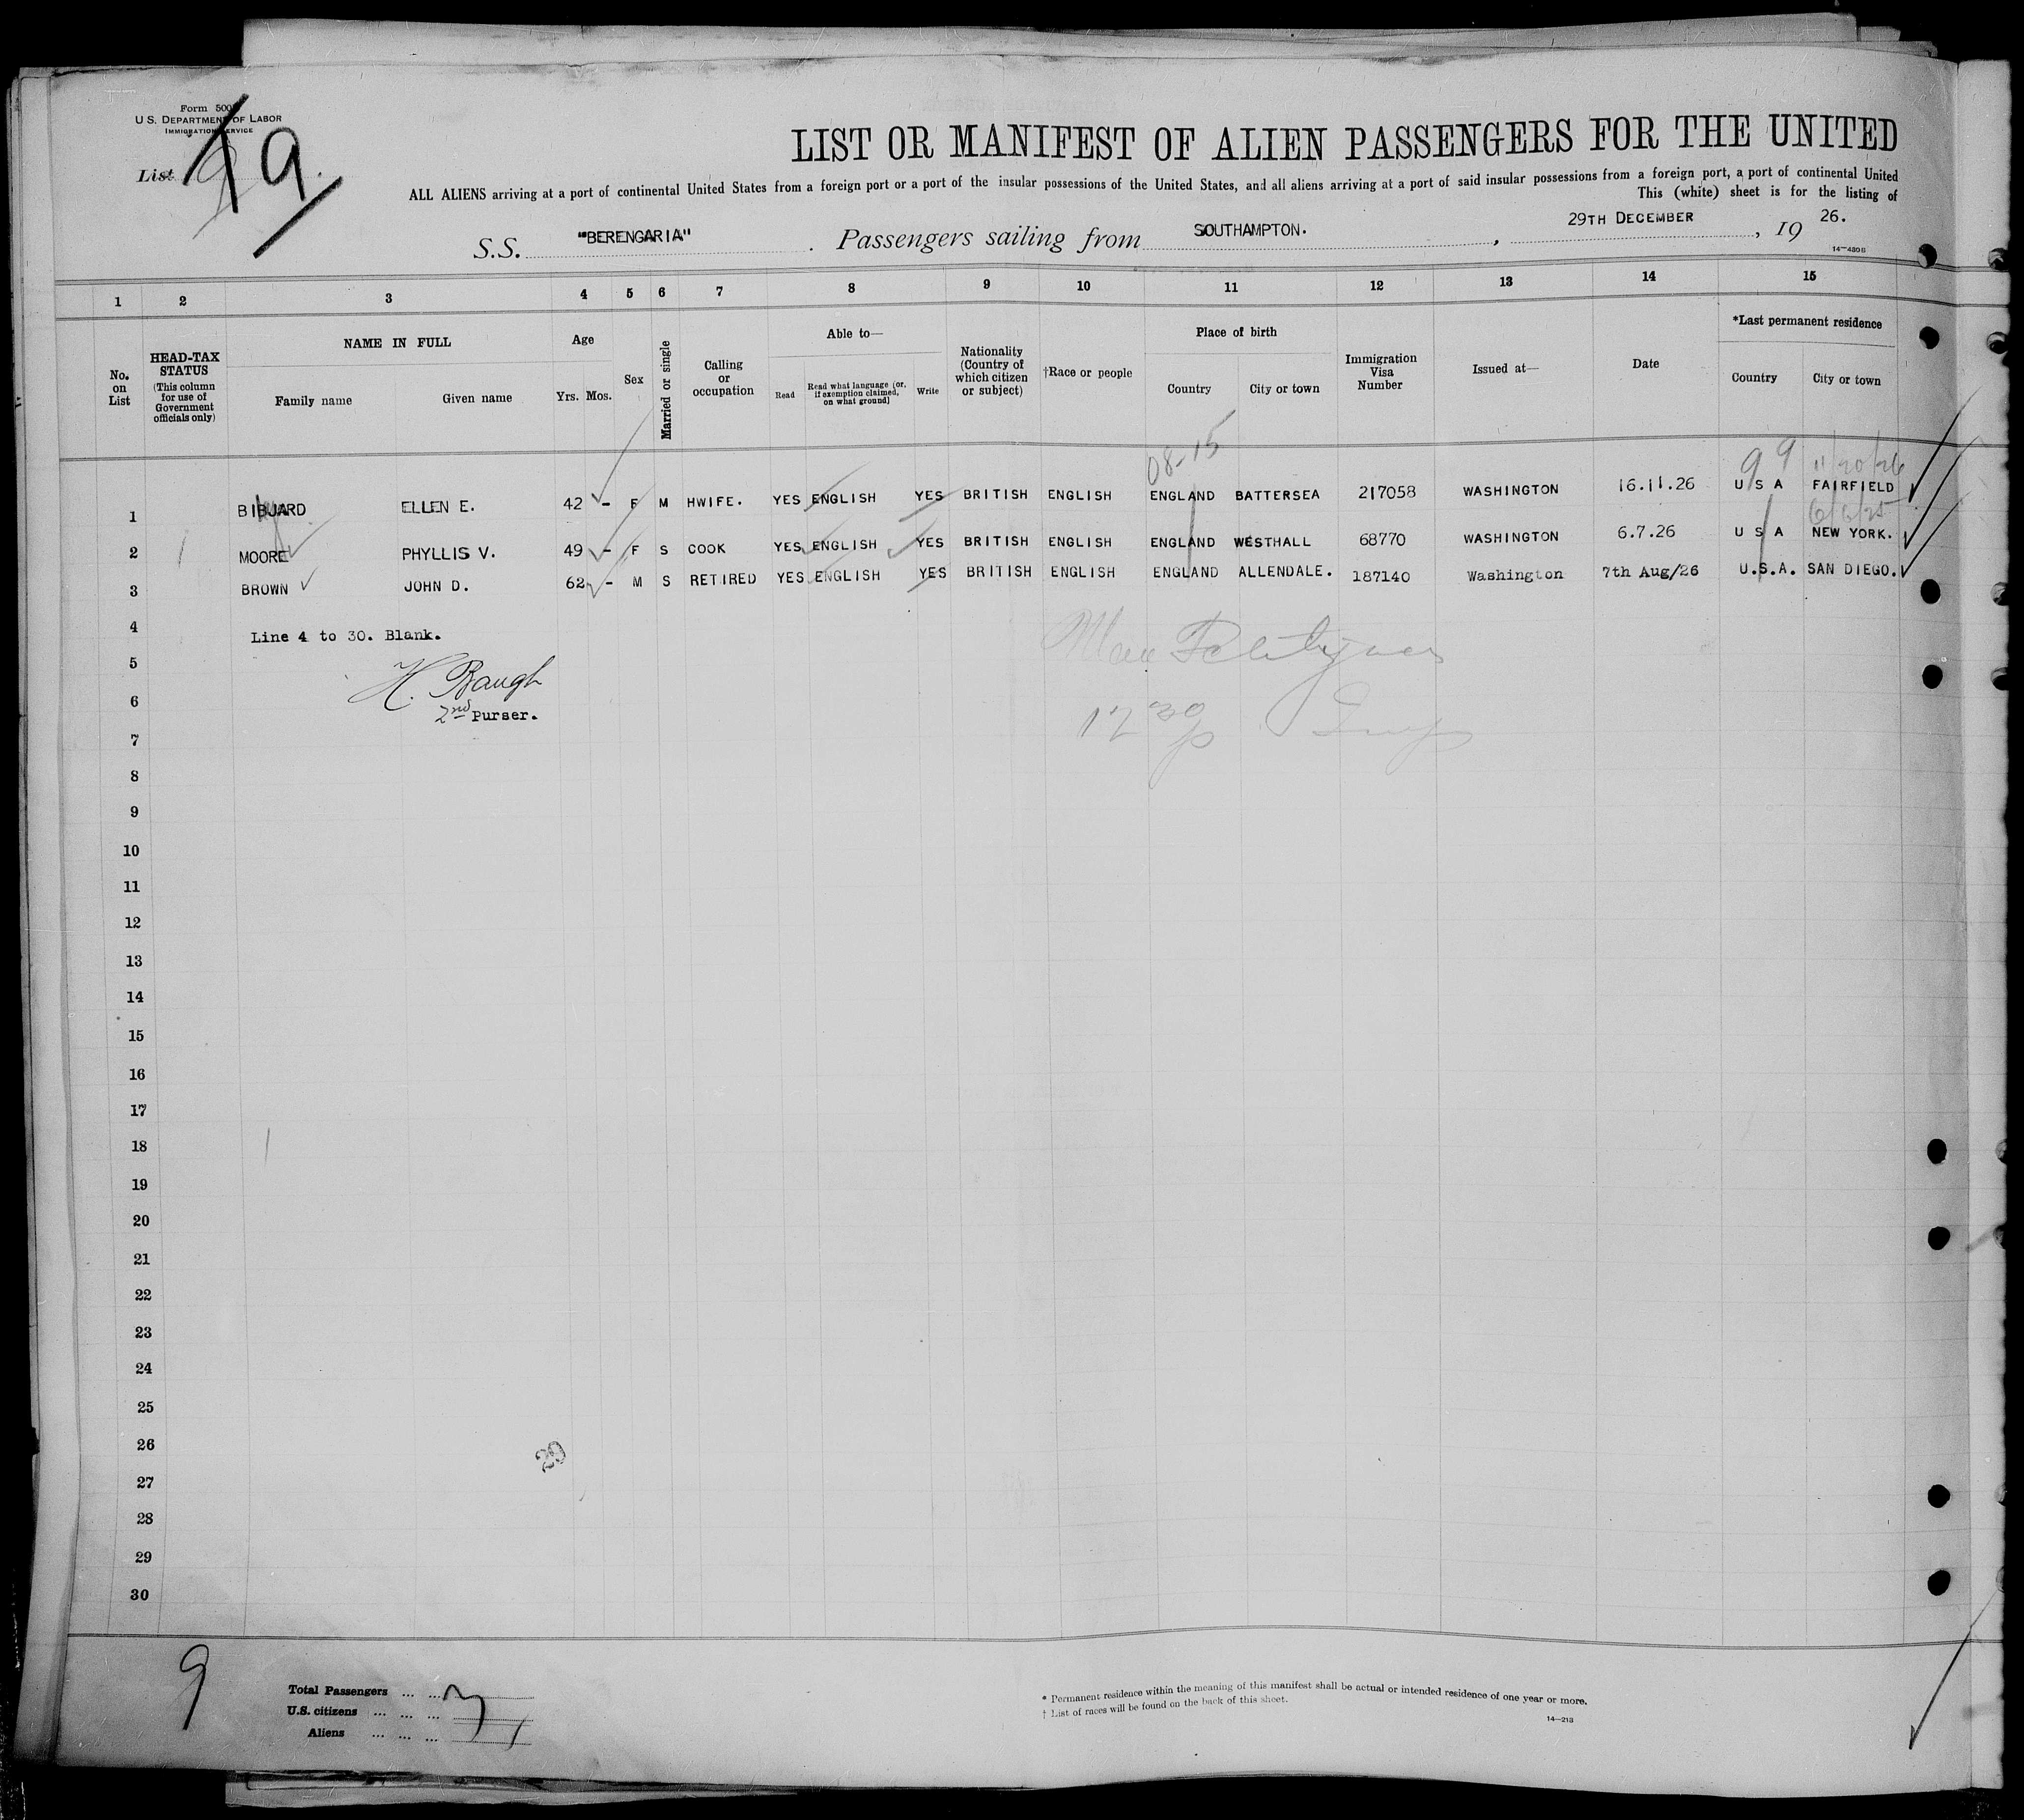 Form 500
U S. DEPARTMENT OF LABOR
IMMIGRATION SERVICE
List 9
LIST OR MANIFEST OF ALIEN PASSENGERS FOR THE UNITED
ALL ALIENS arriving at a port of continental United States from a foreign port or a port of the insular possessions of the United States, and all aliens arriving at a port of said insular possessions from a foreign port, a port of continental United
This (white) sheet is for the listing of
S.S. "BERENGARIA" . Passengers sailing from SOUTHAMPTON. , 29TH DECEMBER , 19 26.
14—480 B
1 2 3 4 5 6 7 8 9 10 11 12 13 14 15
No. on List
HEAD-TAX STATUS (This column for use of Government officials only)
NAME IN FULL
Family name Given name
Age
Yrs. Mos.
Sex
Married or single
Calling or occupation
Able to—
Read
Read what language (or, if exemption claimed, on what ground)
Write
Nationality (Country of which citizen or subject)
†Race or people
Place of birth
Country City or town
Immigration Visa Number
Issued at—
Date
*Last permanent residence
Country City or town
08-15
9 9 11/20/26
1 ELLEN E. 42 - F M HWIFE. YES ENGLISH YES BRITISH ENGLISH ENGLAND BATTERSEA 217058 WASHINGTON 16.11.26 U S A FAIRFIELD
2 MOORE PHYLLIS V. 49 - F S COOK YES ENGLISH YES BRITISH ENGLISH ENGLAND WESTHALL 68770 WASHINGTON 6.7.26 U S A NEW YORK.
3 BROWN JOHN D. 62 - M S RETIRED YES ENGLISH YES BRITISH ENGLISH ENGLAND ALLENDALE. 187140 Washington 7th Aug/26 U.S.A. SAN DIEGO.
4 Line 4 to 30. Blank.
5 H. Baugh
6 2nd Purser.
7
8
9
10
11
12
13
14
15
16
17
18
19
20
21
22
23
24
25
26
27
28
29
30
29
9
Total Passengers ... ... 3
U.S. citizens ... ... ...
Aliens ... ... ...
* Permanent residence within the meaning of this manifest shall be actual or intended residence of one year or more.
† List of races will be found on the back of this sheet.
14—213